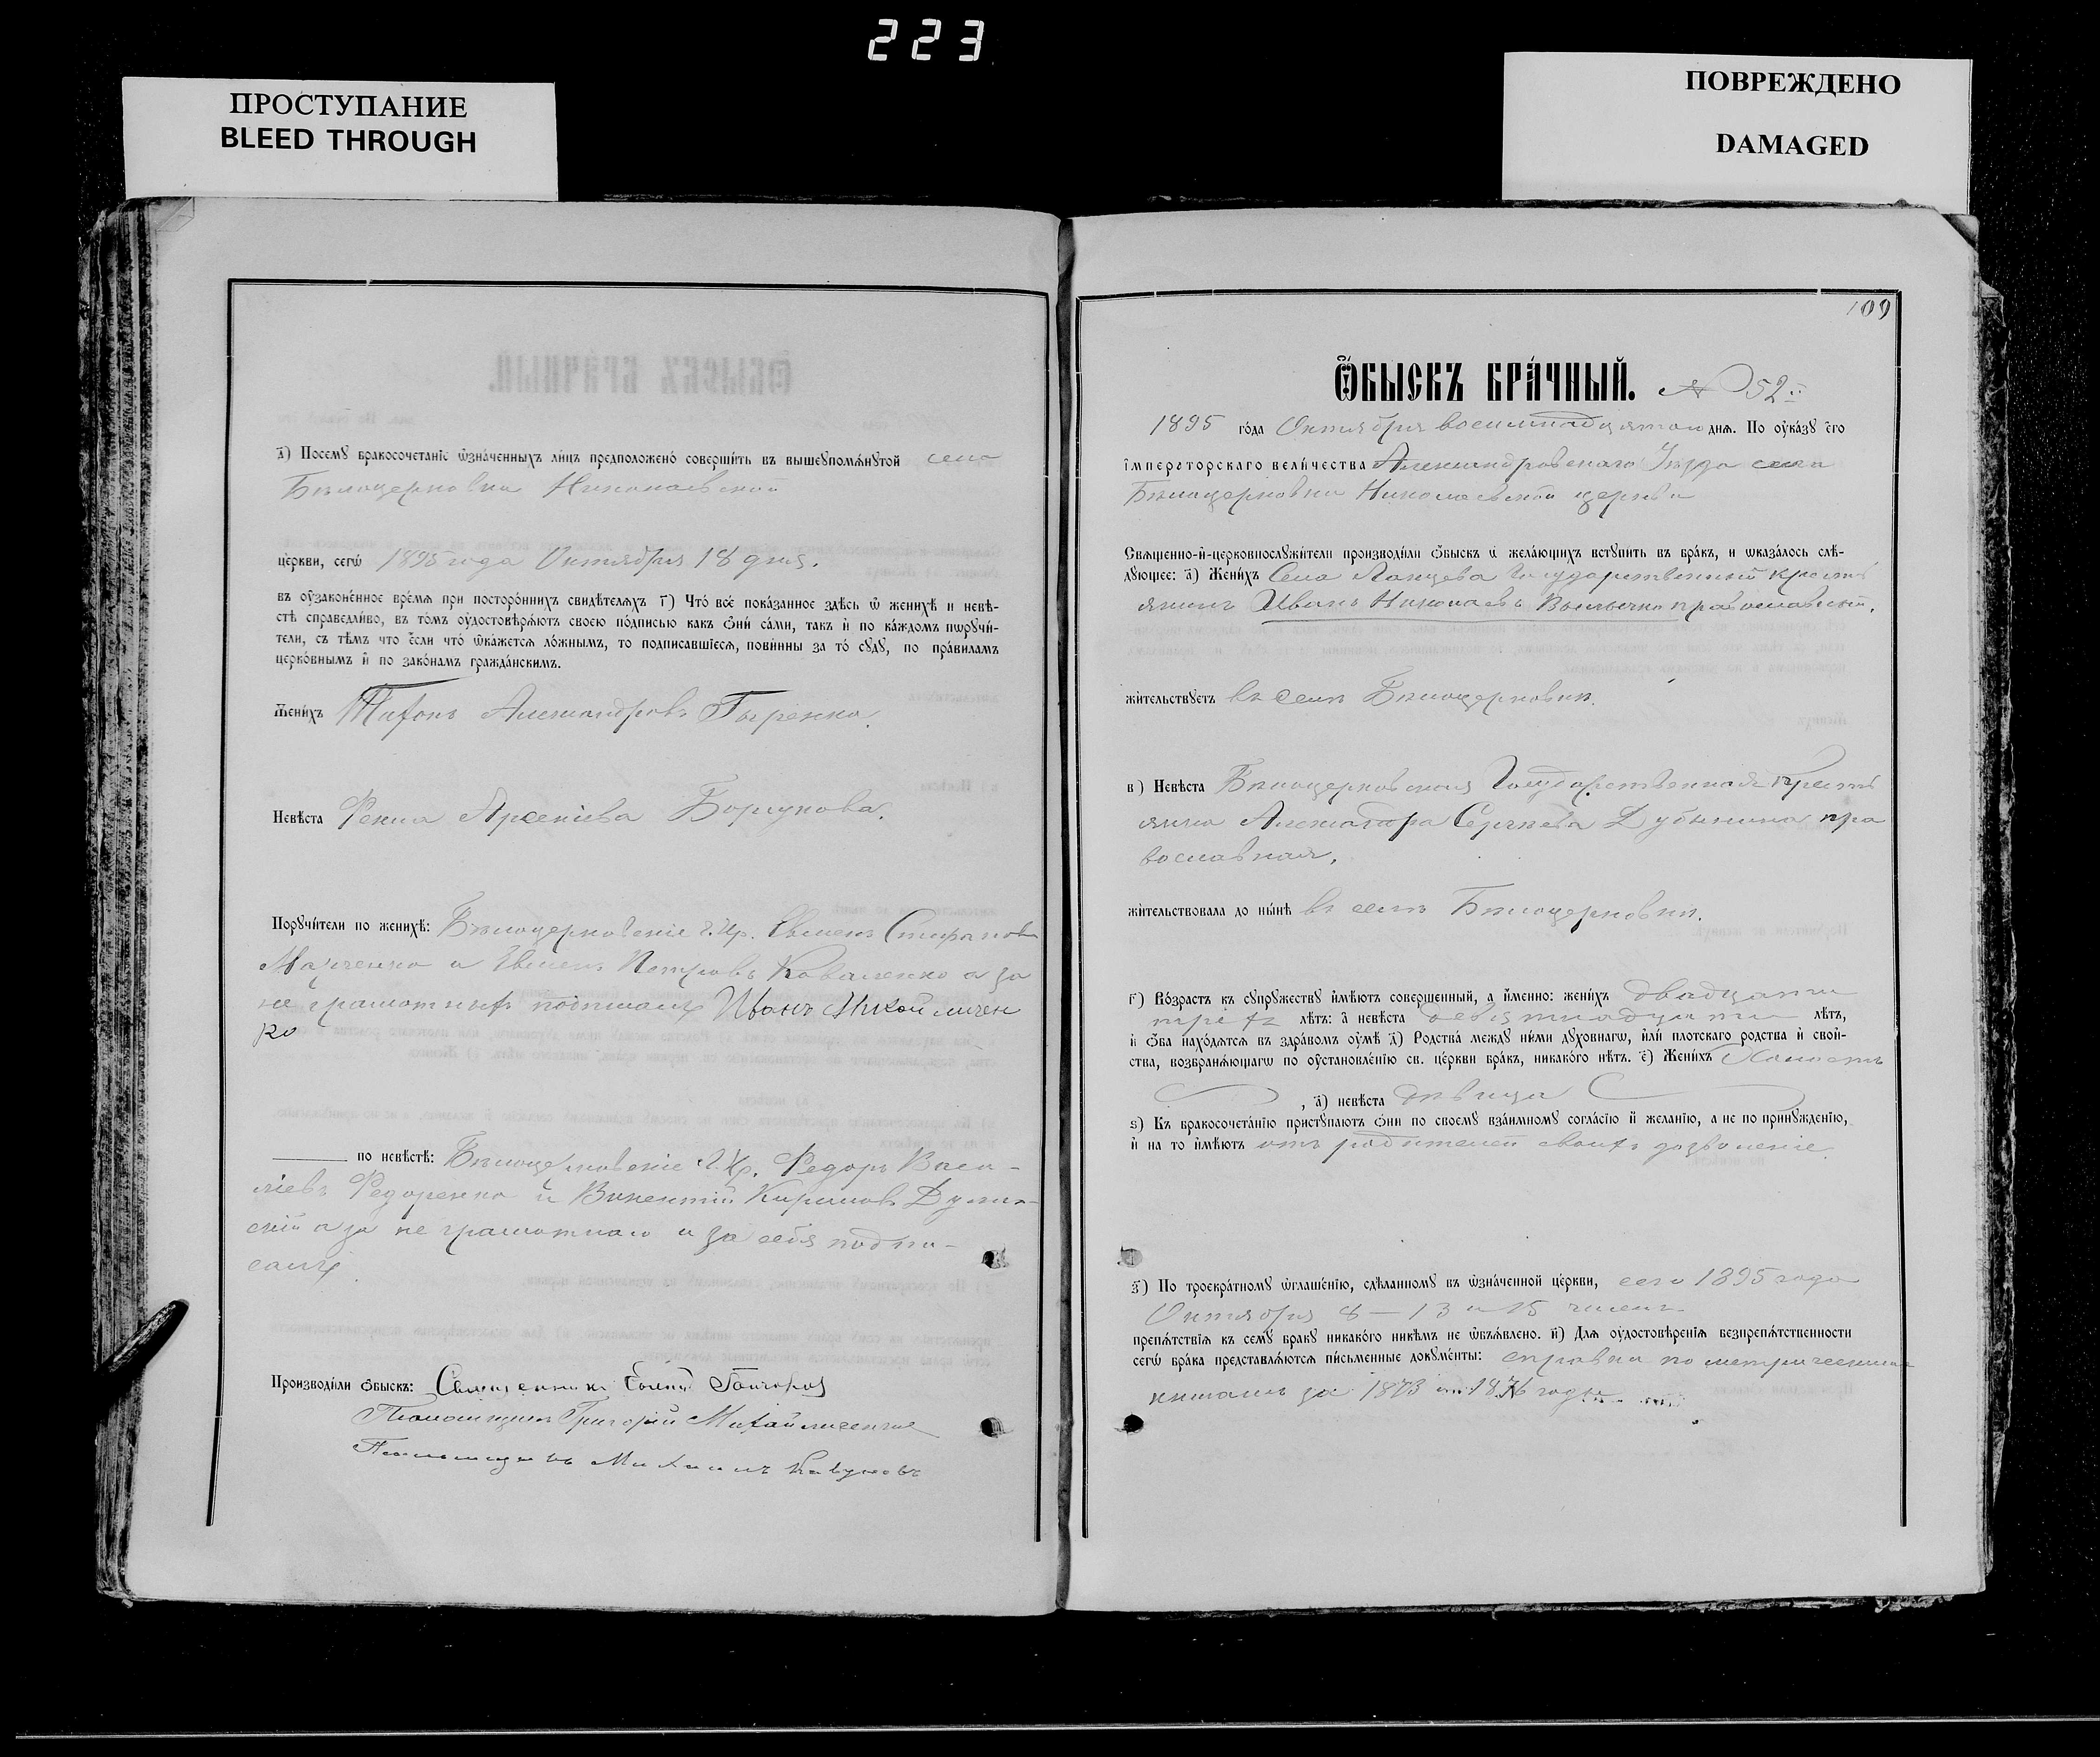 223
ПРОСТУПАНИЕ
BLEED THROUGH
ПОВРЕЖДЕНО
DAMAGED
д҃) Посемꙋ бракосочетаніе ѡзнáченныхъ лицъ предположенó соверши́ть въ вышеꙋпомѧ́нꙋтой села
Бѣлоцерковки Николаевской
цéркви, сегѡ̀ 1895 года Октября 18 дня.
въ оу҆законéнное врéмѧ при посторóннихъ свидѣтелѧхъ г҃) Чтó всé покáзанное здѣсь ѡ҆ женихѣ и невѣ-
стѣ справедли́во, въ тóмъ оу҆достовѣрѧ́ютъ своею пóдписью какъ ѻ҆ни́ сáми, такъ и҆ по кáждомъ пѡрꙋчи́-
тели, съ тѣмъ что є҆сли чтó ѡ҆кáжетсѧ лóжнымъ, то подписавшіесѧ, пови́нны за тó сꙋдꙋ, по прáвиламъ
церкóвнымъ и҆ по закóнамъ граждáнскимъ.
Жени́хъ Тихонъ Александровъ Гыренко.
Невѣста Фекла Арсеніева
Порꙋчи́тели по женихѣ: Бѣлоцерковскіе г. кр. Стефановъ
Марченко и Петровъ Коваленко а за
не грамотныхъ подписалъ Иванъ Михайличен
ко
по невѣстѣ: Бѣлоцерковскіе г. кр. Федоръ Васи-
ліевъ Федоренко и Викентій Кириловъ
а за не грамотнаго и за себя подпи-
салъ
Производи́ли ѻ҆быскъ: Священникъ
Помощникъ Григорій Михайличенко
Помощникъ Михаилъ
109
Ѻ҆БЫСКЪ БРА́ЧНЫЙ. № 52й
1895 гóда Октября восемнадцятаго днѧ. По оу҆кáзꙋ є҆го
і҆мператорскаго вели́чества Александровскаго Уѣзда села
Бѣлоцерковки Николаевской церкви
Свѧщенно-и҆-церковнослꙋжи́тели производи́ли ѻ҆быскъ ѡ҆ желáющихъ встꙋпить въ брáкъ, и ѡказáлось слѣ́-
дꙋющее: а҃) Жени́хъ Села Государственный крестъ
янинъ Иванъ Николаевъ православный.
жи́тельствꙋетъ въ селѣ Бѣлоцерковкѣ.
в҃) Невѣста Бѣлоцерковская Государственная крестъ
янка Александра Сергѣева Дубинина пра
вославная.
жи́тельствовала до ны́нѣ въ селѣ Бѣлоцерковкѣ.
г҃) Вóзрастъ къ сꙋпрꙋжествꙋ и҆мѣютъ совершенный, а и҆менно: жени́хъ двадцати
трехъ лѣтъ: а҆ невѣста девятнадцати лѣтъ,
и҆ ѻ҆ба нахóдѧтсѧ въ здрáвомъ оу҆мѣ д҃) Родствá междꙋ ни́ми дꙋховнагѡ, и҆ли́ плотскаго родства и҆ свой-
ства, возбранѧ́ющагѡ по оу҆становлéнію св. цéркви брáкъ, никакóго нѣтъ. є҃) Жени́хъ Холостъ
, а҆) невѣста дѣвица
ѕ҃) Къ бракосочетáнію пристꙋпаютъ ѻ҆ни по своемꙋ взаи́мномꙋ соглáсію и҆ желанію, а не по принꙋжденію,
и҆ на то и҆мѣютъ отъ родителей своихъ дозволеніе.
з҃) По троекрáтномꙋ ѡ҆глашéнію, сдѣланномꙋ въ ѡ҆знáченной цéркви, сего 1895 года
Октября 8 — 13 и 15 чиселъ
препѧ́тствіѧ къ семꙋ бракꙋ никакóго никѣмъ не ѡ҆бъѧ́влено. и҃) Длѧ оу҆достовѣренія безпрепѧ́тственности
сегѡ̀ брáка представлѧ́ютсѧ пи́сьменные докꙋме́нты: справка по метрическимъ
книгамъ за 1873 и 1876 годы